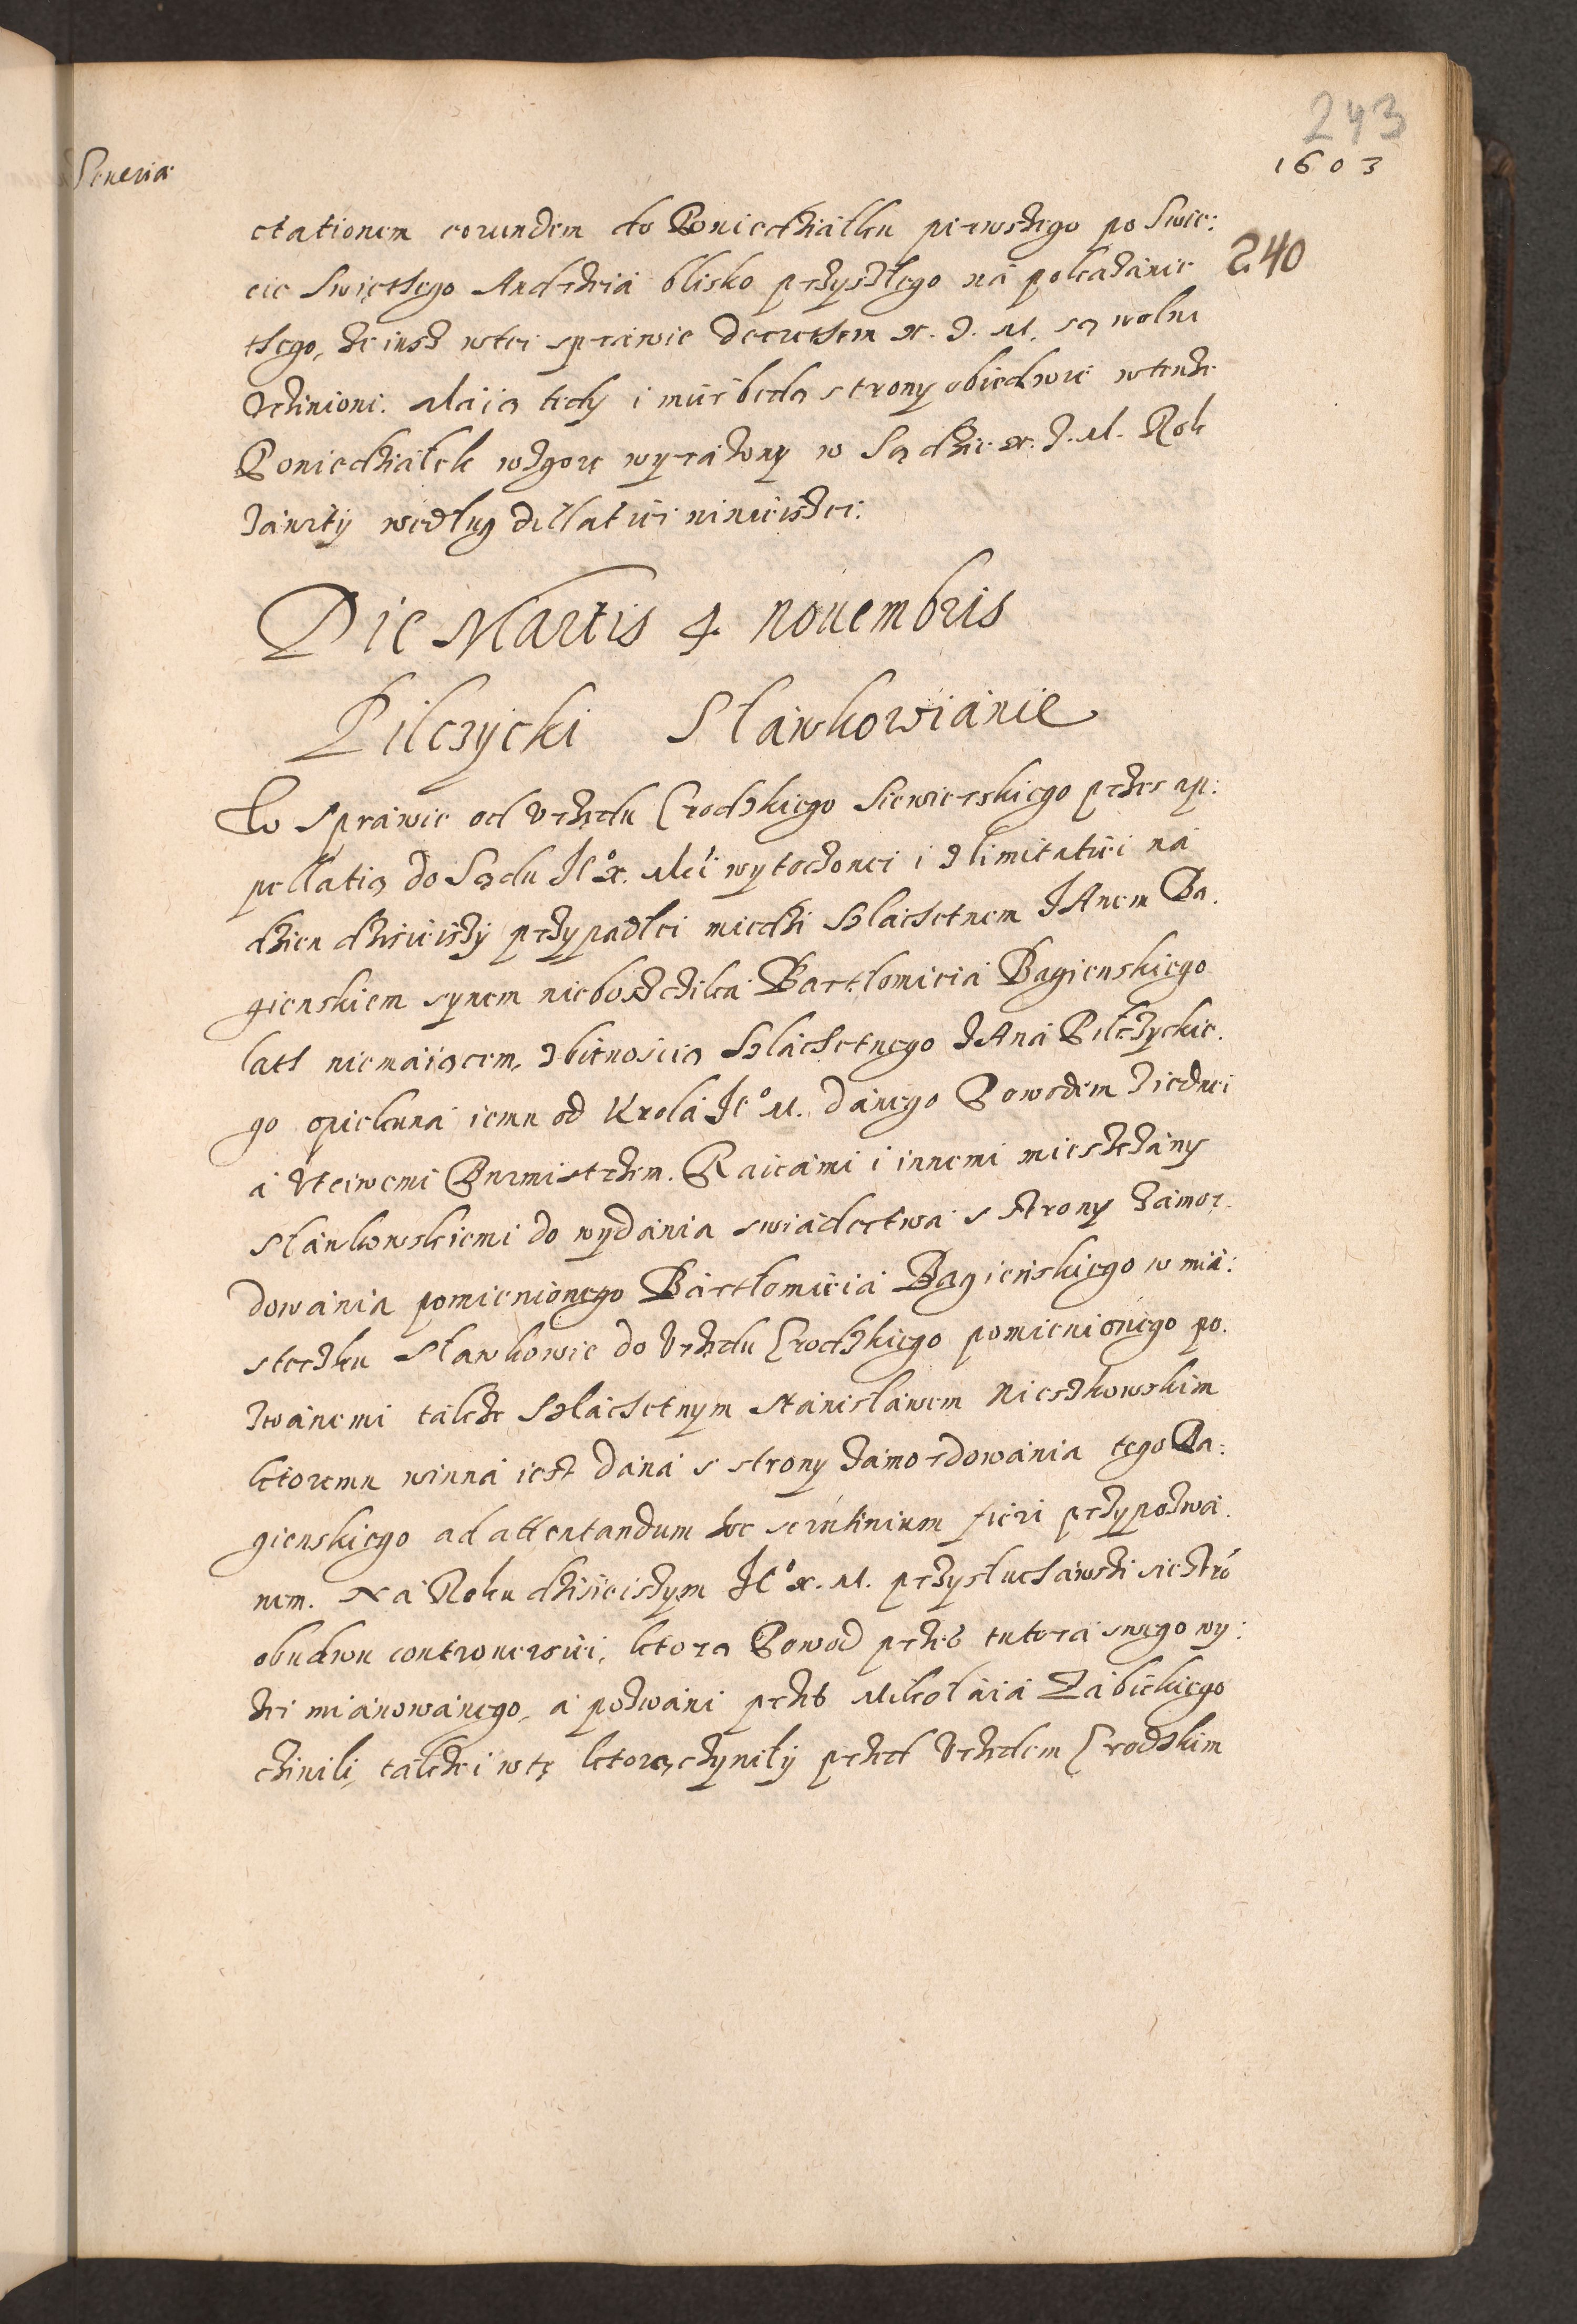 243
1603
Seueria
240
ctationem eorundem do Poniedziałku pierwszego po Swie:
cie Swięthego Andrzeia blisko przyszłego na pokazanie
thego, że iusz wtei sprawie decrethem x. J. M. są wolni
Vczinioni. Maią tedy i mieć będą strony obiedwie wtenże
Poniedziałek wzgore wyrażony w Sądzie x. J. M. Rok
zawity według dillatiei ninieiszei.
Die Martis 4 nouembris
Pilczycki Sławkowianie
W sprawie od Vrzędu Grodzkiego Siewierskiego przes ap:
pellatią do Sądu Je° x. Mći wytoczonei i z limitatiei na
dzien dzisieiszy przypadłei miedzi Szlachetnem JAnem Ba.
gienskiem synem nieboszczika Bartłomieia Bagienskiego
lath niemaiącem, z bitnoscią Szlachetnego JAna Pilczyckie.
go opiekuna iemu od Krola Je° M. danego Powodem z iednei
a Vtciwemi Burmistrzem. Raicami i innemi mieszczany
Sławkowskiemi do wydania swiadectwa s strony zamor.
dowania pomienionego Bartłomieia Bagienskiego w mia:
steczku Sławkowie do Vrzędu Grodzkiego pomienionego po.
zwanemi także Szlachetnym Stanisławem Nieszkowskim
ktoremu winna iest dana s strony zamordowania tego Ba:
gienskiego ad attentandum hoc scrutinium fieri przypozwa.
nem. Na Roku dzisieiszym Je° x. M. przysłuchawszi się stro
obudwu controuersiei, ktorą Powod przes tutora swego wy:
żei mianowanego, a pozwani przes Mikołaia Zabickiego
czinili, także i wtę ktorą czyniły przed Vrzędem Grodzkim